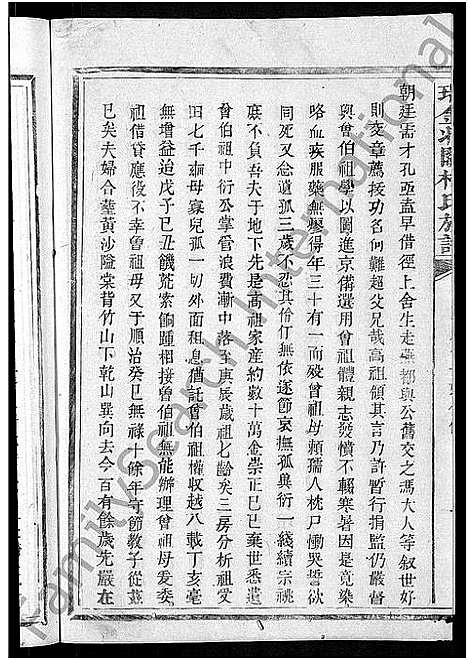 瑞金 林氏族譜
朝廷需才孔亟盍早借徑上舍生走 都與公舊交之馮大人等叙世好
則文章薦拔功名何難超父兄哉高祖頷其言乃許暫行捐監仍嚴督
與曾伯祖學以圖進京備選用曾祖體親志發憤不輟寒暑因是竟染
咯血疾服藥無瘳得年三十有一而殁曾祖母賴孺人枕尸慟哭誓欲
同死又念遺孤三歲不忍其伶仃無依遂節哀撫孤冀衍一綫續宗祧
庶不負吾夫于地下先是高祖家產約數十萬金崇正巳巳棄世悉遺
曾伯祖中衍公掌當浪費漸中落至庚辰歲祖七齡矣三房分析祖受
田七千 母寡兒孤一切外面租息猶託曾伯祖權收越八載丁亥毫
無增益迨戊子巳丑饑荒索餉踵相接曾伯祖無能辦理曾祖母爰委
祖借貸應役不幸曾祖母又于順治癸巳無祿十餘年守節教子從茲
巳矣夫婦合塟黃沙隘棠背竹山下乾山巽向去今百有餘歲先嚴在
FamilySearch International